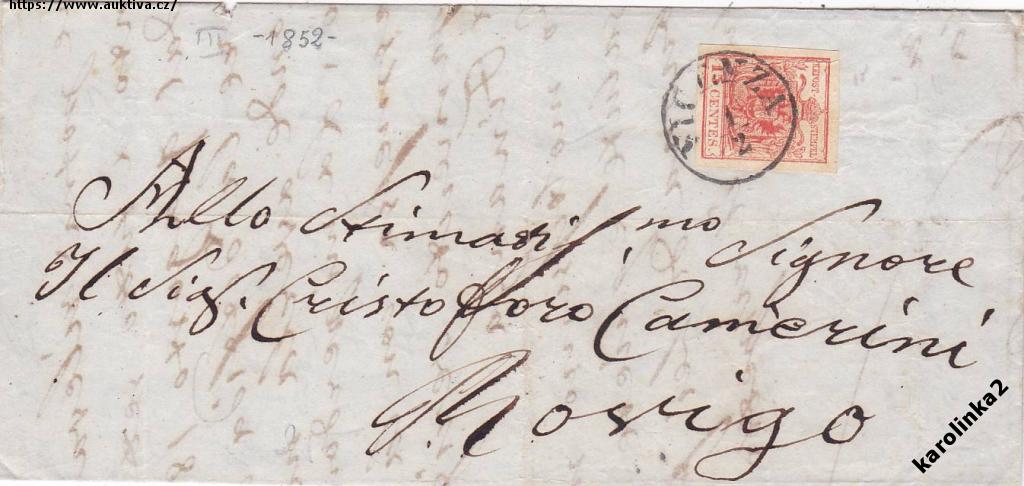 https://www.auktiva.cz/
III -1852-
VICENZA
KKPOST-STEMPEL
15 CENTES
Allo Stimatiss.mo Signore
Il Sigr. Cristofforo Camerini
Rovigo
karolinka2